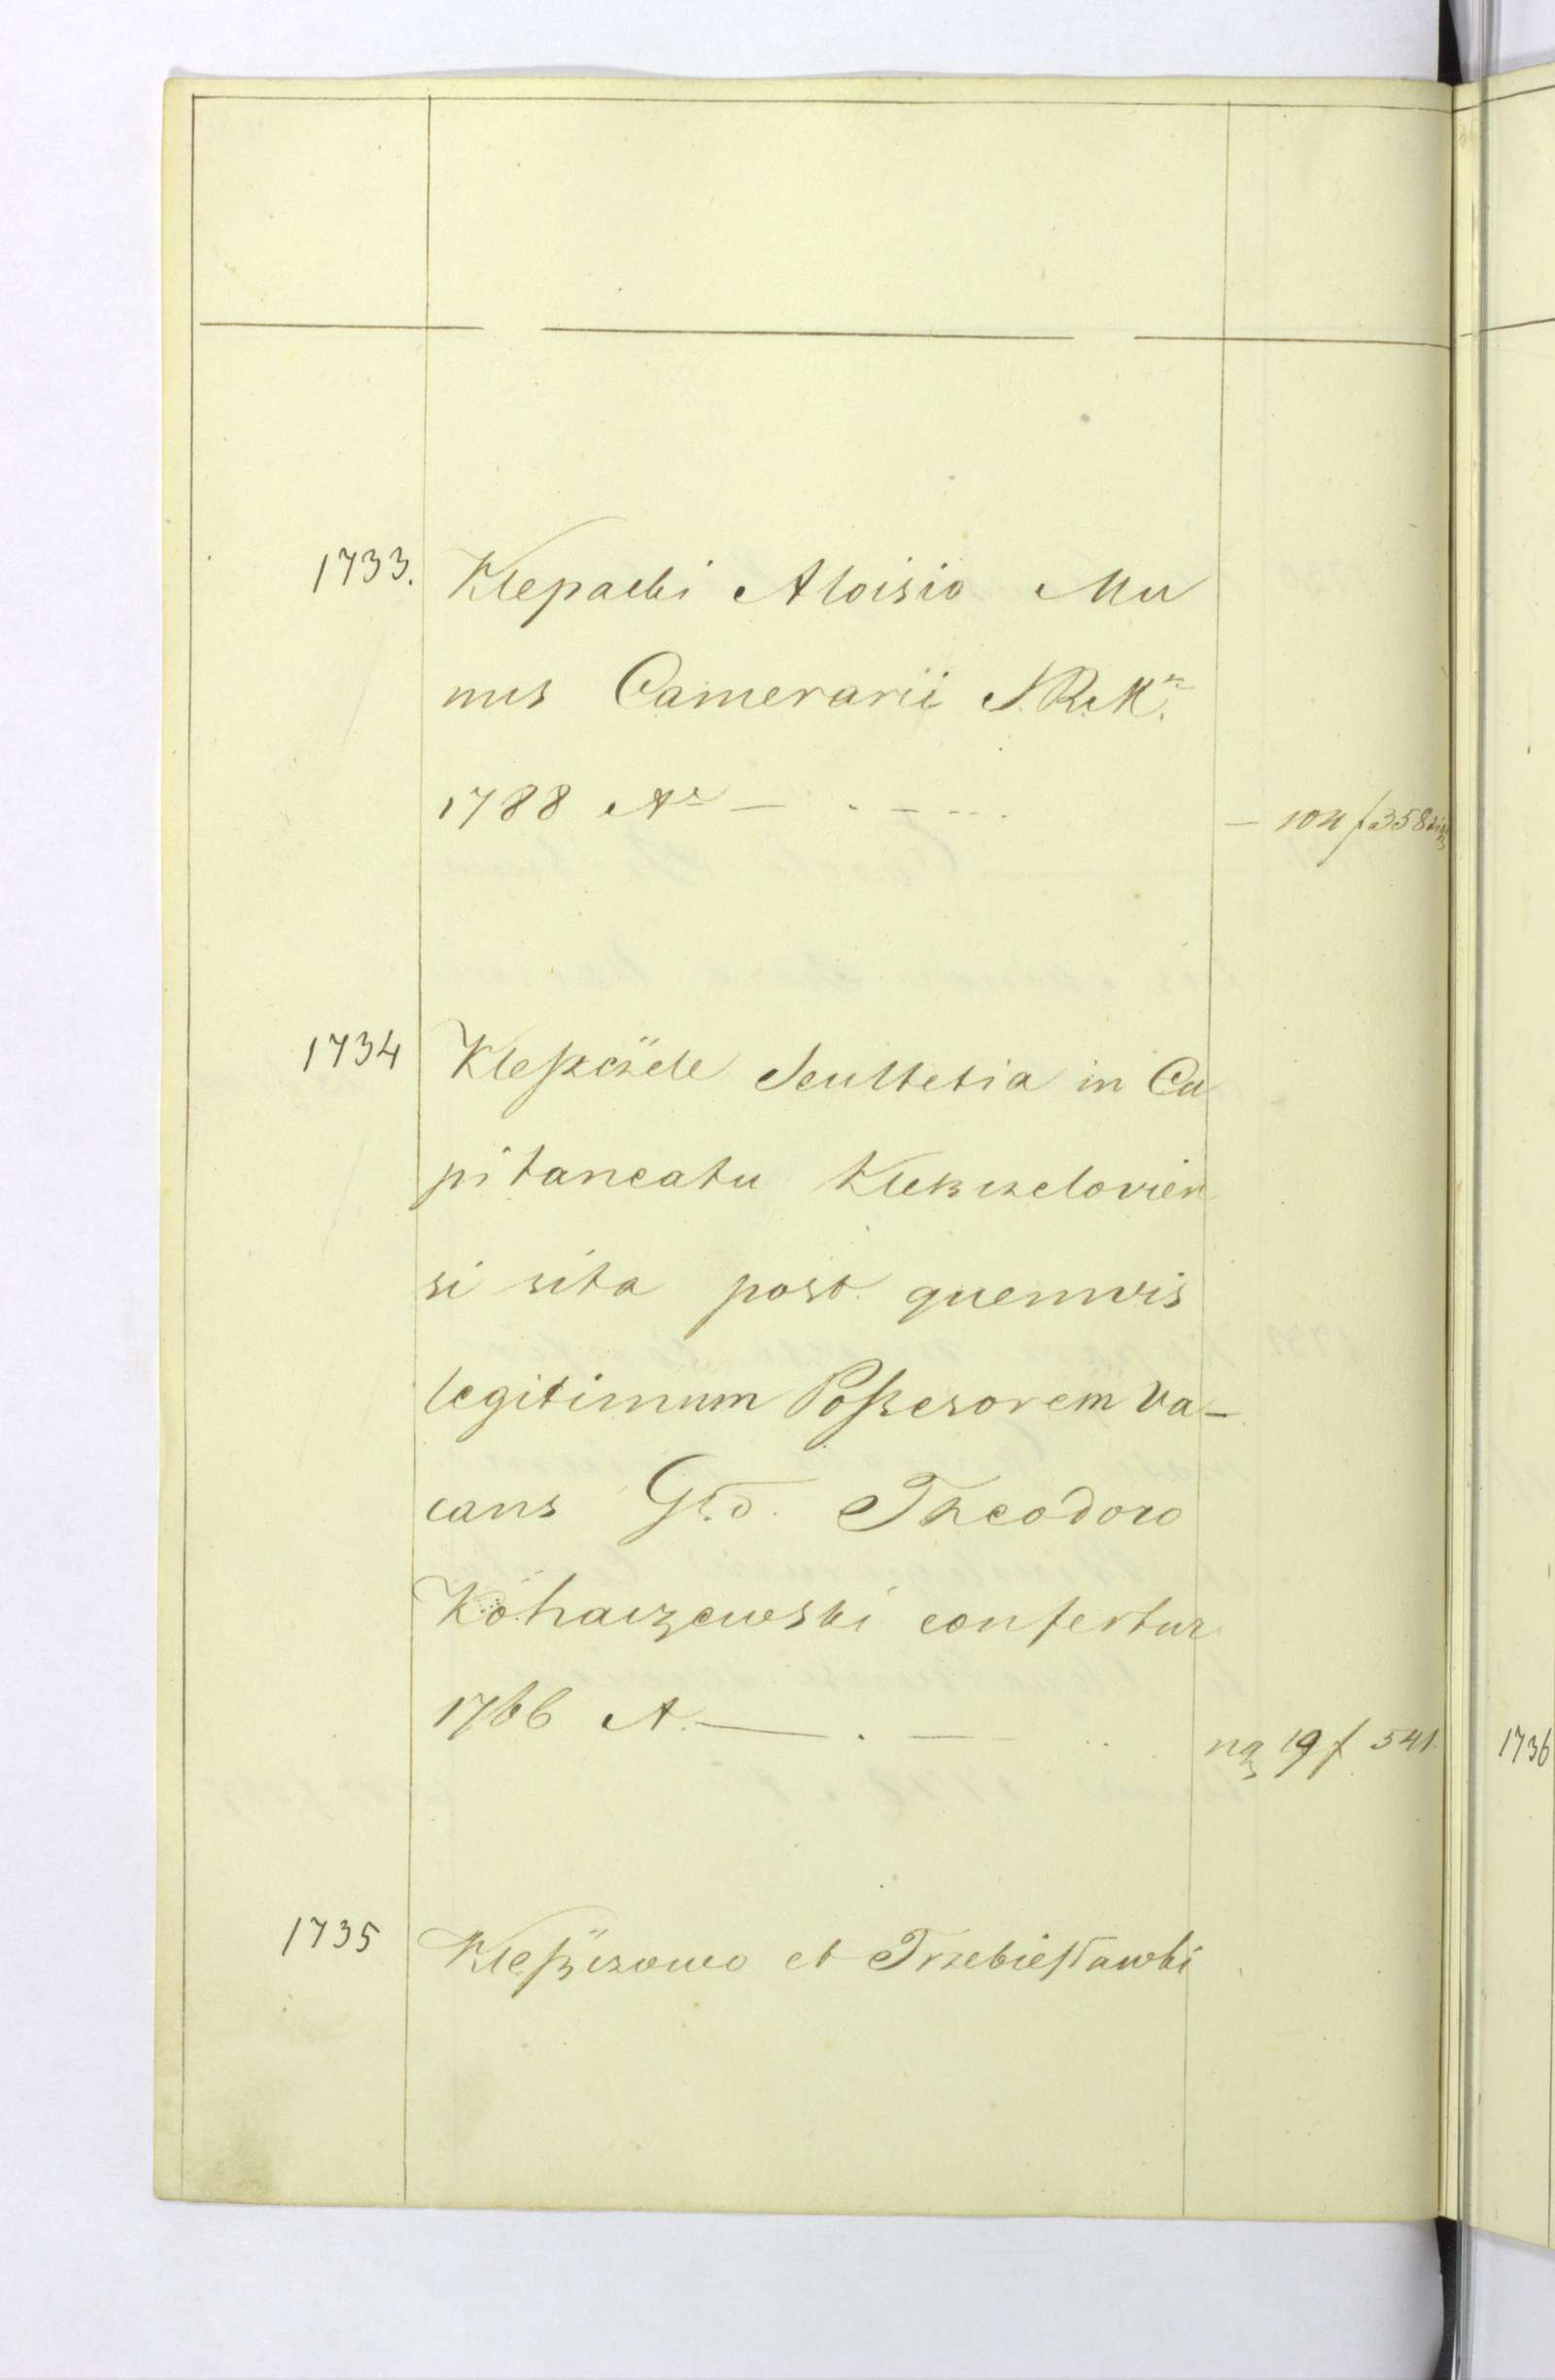 1733. Klepacki Aloisio Mu
nus Camerarii S.R.M.
1788 A
— 104 f 358
1734 Kleßczele Scultetia in Ca
pitaneatu Kleszczelovien
si sita post quemvis
legitimum Poßesorem va-
cans Gr̃d. Theodoro
Kohaczewski confertur
1766 A. —
19 f 541.
1735 Kleßczowo et Trzebiesławki
1736